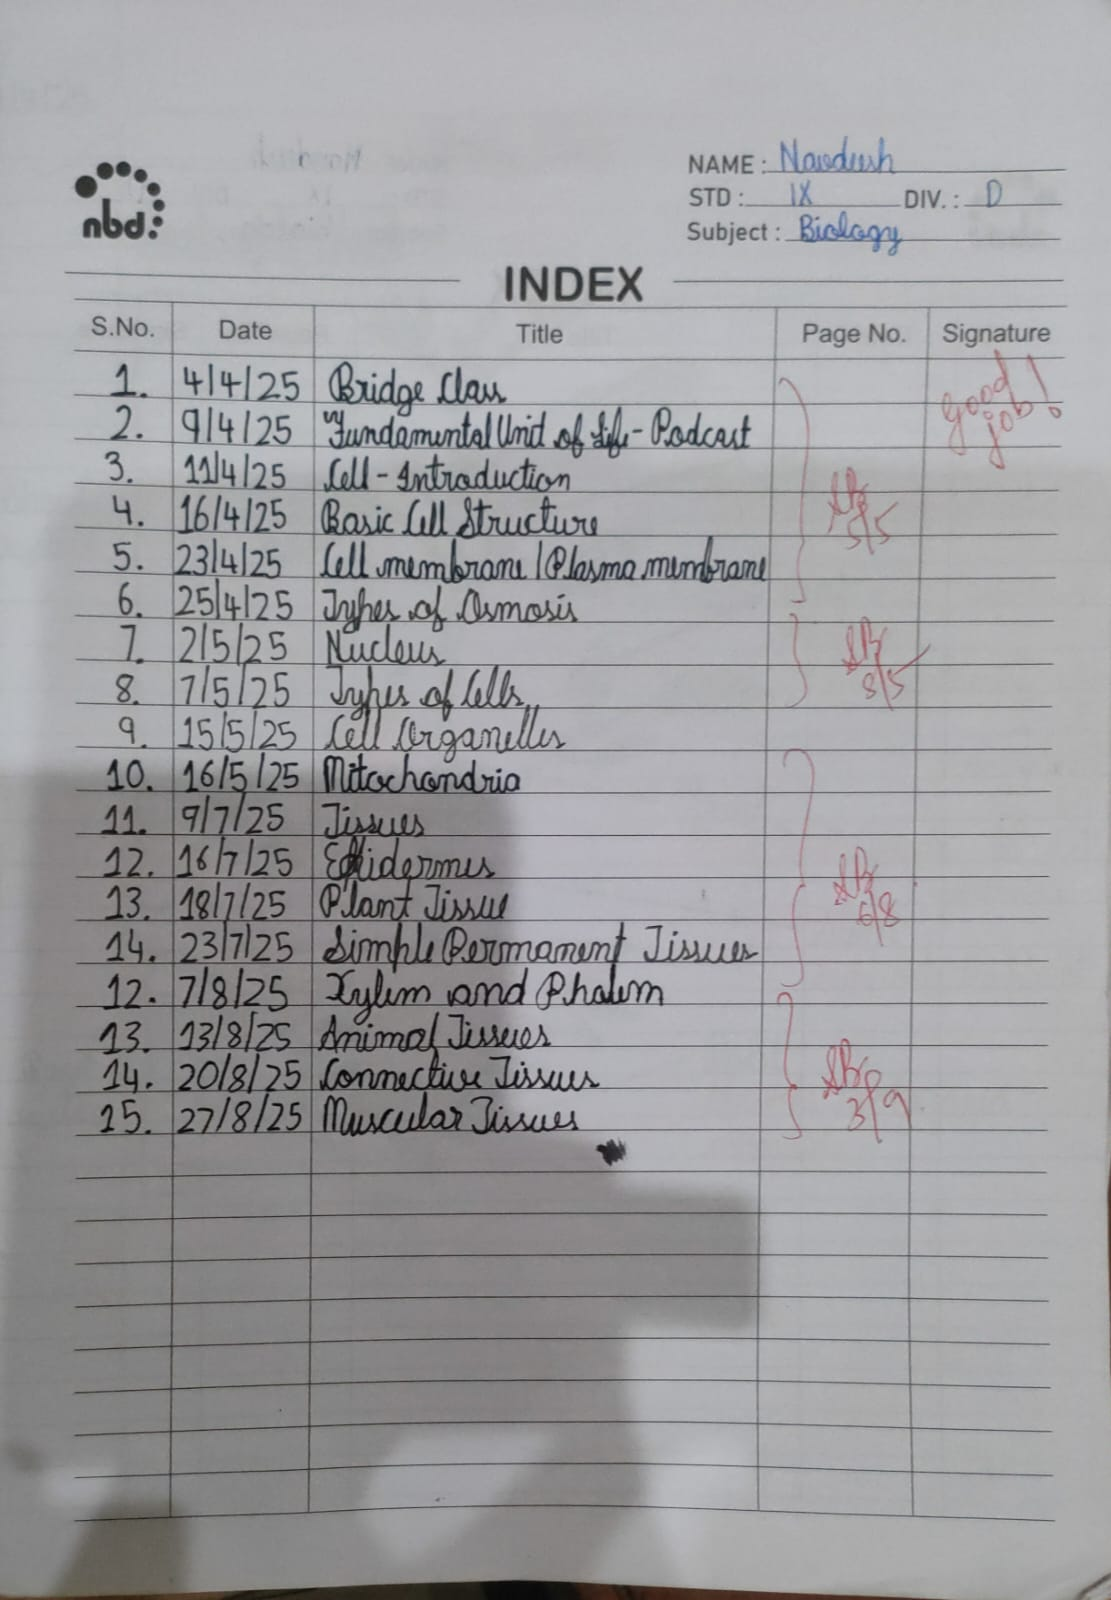 nbd
NAME : Navdush
STD : IX DIV. : D
Subject : Biology
INDEX
S.No. Date Title Page No. Signature
1. 4/4/25 Bridge Class good job!
2. 9/4/25 Fundamental Unit of Life - Podcast
3. 11/4/25 Cell - Introduction
4. 16/4/25 Basic Cell Structure 5/5
5. 23/4/25 Cell membrane / Plasma membrane
6. 25/4/25 Types of Osmosis
7. 2/5/25 Nucleus
8. 7/5/25 Types of Cells 8/5
9. 15/5/25 Cell Organelles
10. 16/5/25 Mitochondria
11. 9/7/25 Tissues
12. 16/7/25 Epidermis
13. 18/7/25 Plant Tissue 6/8
14. 23/7/25 Simple Permanent Tissues
12. 7/8/25 Xylem and Phloem
13. 13/8/25 Animal Tissues
14. 20/8/25 Connective Tissues
15. 27/8/25 Muscular Tissues 3/9